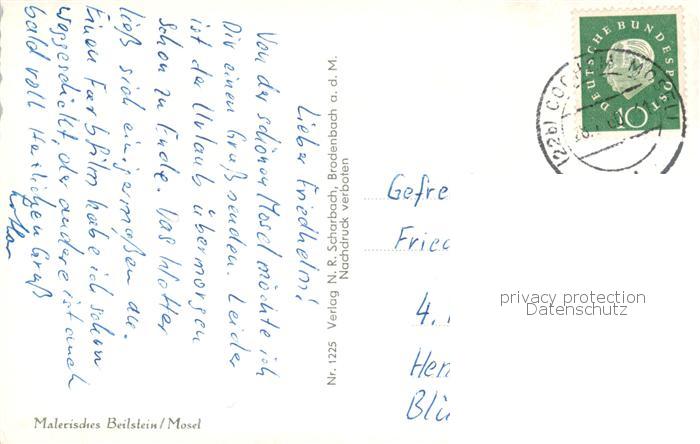 Lieber Friedhelm!
Von der schönen Mosel möchte ich
Dir einen Gruß senden. Leider
ist der Urlaub übermorgen
schon zu Ende. Das Wetter
ließ sich einigermaßen an.
Einen Farbfilm habe ich schon
weggeschickt, der andere ist auch
bald voll. Herzlichen Gruß
Lothar
Malerisches Beilstein/Mosel
Nr. 1225 Verlag N. R. Scharbach, Brodenbach a. d. M.
Nachdruck verboten
DEUTSCHE BUNDESPOST
10
(22b) COCHEM
Gefre
Fried
4.
Her
Blü
privacy protection
Datenschutz